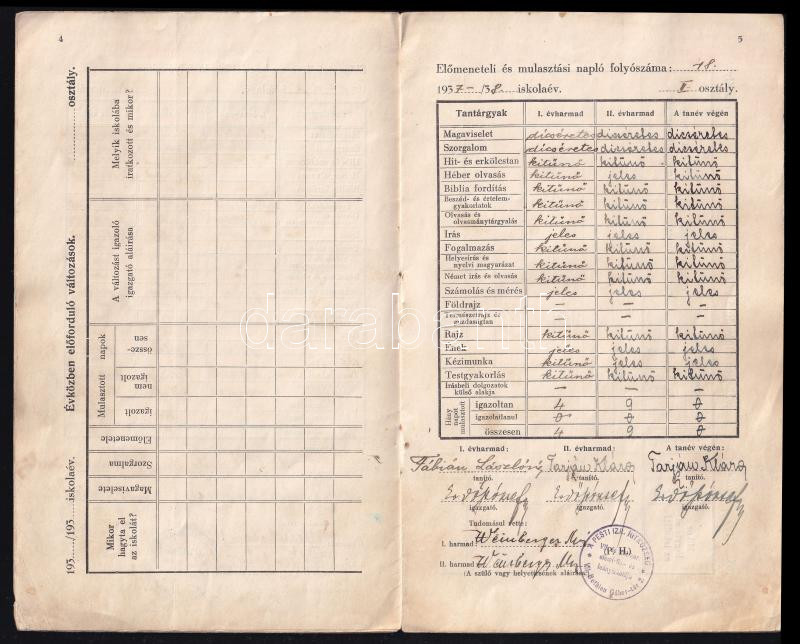 4
193..../193.... iskolaév.
Évközben előforduló változások.
............ osztály.
Mikor hagyta el az iskolát?
Magaviselete
Szorgalma
Előmenetele
Mulasztott napok
igazolt
nem igazolt
össze-sen
A változást igazoló igazgató aláírása
Melyik iskolába iratkozott és mikor?
5
Előmeneteli és mulasztási napló folyószáma: 18.
1937-/38. iskolaév. II osztály.
Tantárgyak I. évharmad II. évharmad A tanév végén
Magaviselet dicséretes dicséretes dicséretes
Szorgalom dicséretes dicséretes dicséretes
Hit- és erkölcstan kitünő kitünő kitünő
Héber olvasás kitünő jeles kitünő
Biblia fordítás kitünő kitünő kitünő
Beszéd- és értelem-gyakorlatok kitünő kitünő kitünő
Olvasás és olvasmánytárgyalás kitünő kitünő kitünő
Irás jeles jeles jeles
Fogalmazás kitünő kitünő kitünő
Helyesírás és nyelvi magyarázat kitünő kitünő kitünő
Német irás és olvasás kitünő kitünő kitünő
Számolás és mérés jeles jeles jeles
Földrajz — — —
Természetrajz és gazdaságtan — — —
Rajz kitünő kitünő kitünő
Ének jeles jeles jeles
Kézimunka kitünő jeles jeles
Testgyakorlás kitünő kitünő kitünő
Irásbeli dolgozatok külső alakja — — —
Hány napot mulasztott
igazoltan 4 9 0
igazolatlanul 0 0 0
összesen 4 9 0
I. évharmad: II. évharmad: A tanév végén:
Fábián Lászlóné Tarján Klára Tarján Klára
tanító. tanító. tanító.
igazgató. igazgató. igazgató.
Tudomásul vette:
I. harmad Weinberger
(P. H.)
II. harmad Weinberger
(A szülő vagy helyettesének aláírása)
A PESTI IZR. HITKÖZSÉG
Bethlen Gábor-tér 2.
darabanth